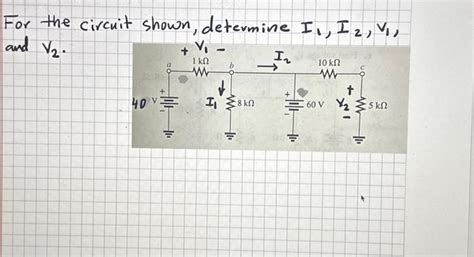 For the circuit shown, determine I₁, I₂, V₁,
and V₂.
+ V₁ −
I₂
1 kΩ
10 kΩ
a
b
c
+
40 V
−
I₁
8 kΩ
+
60 V
−
+
V₂
−
5 kΩ